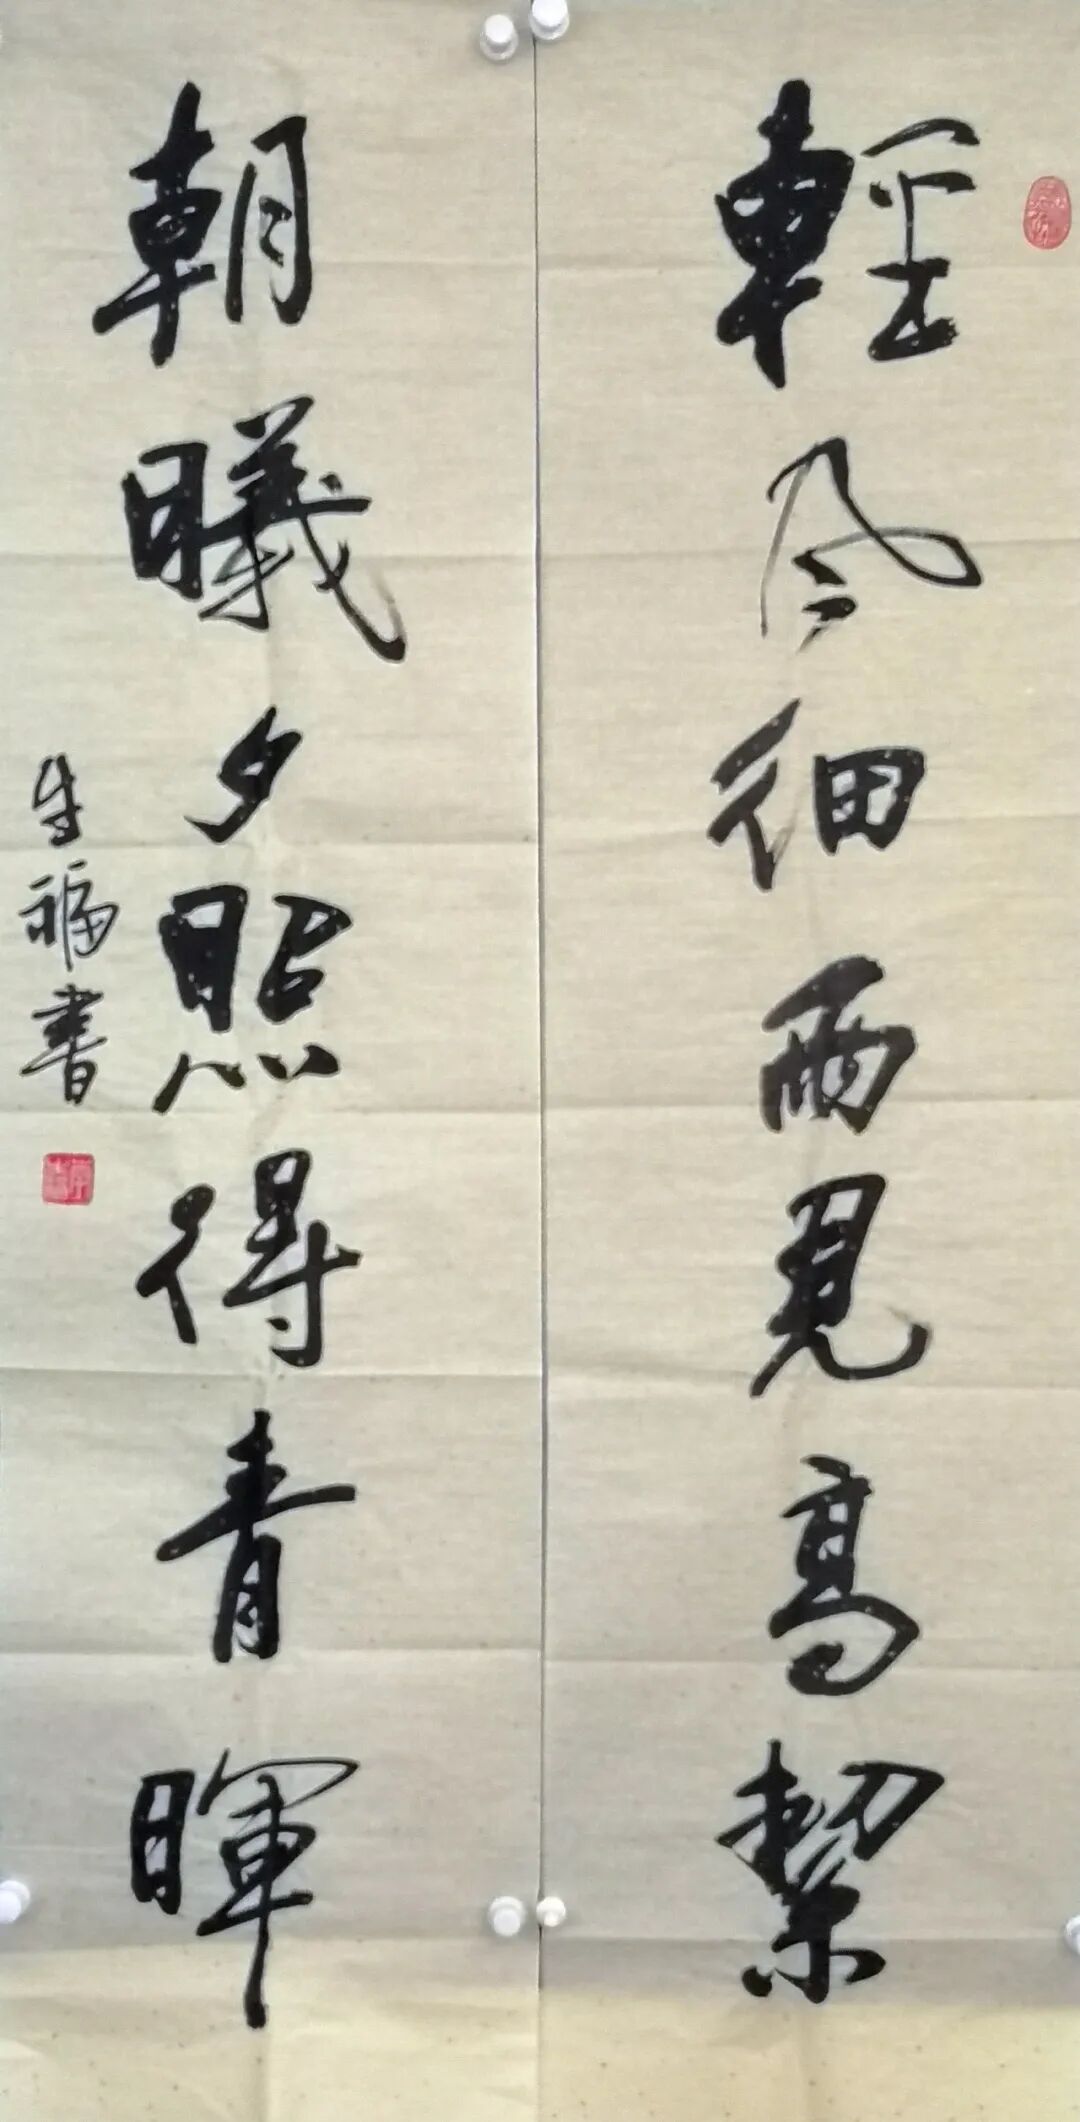 輕風細雨見高絜
朝曦夕照得青暉
福書